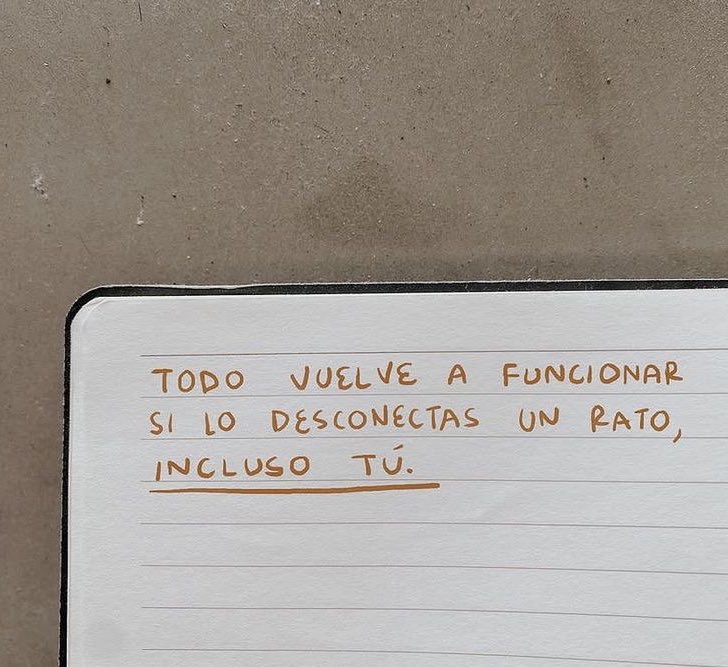 TODO VUELVE A FUNCIONAR
SI LO DESCONECTAS UN RATO,
INCLUSO TÚ.